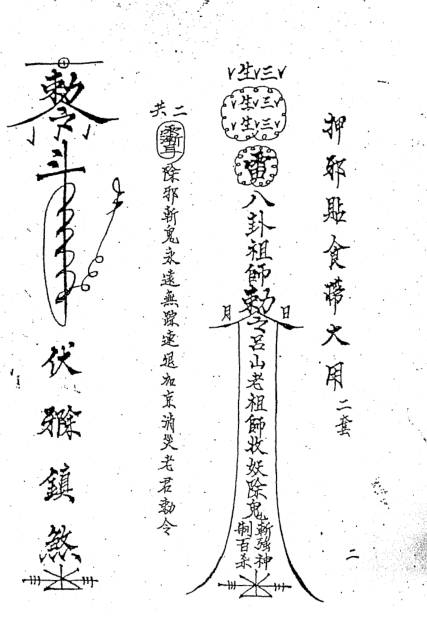 押邪貼食帶大用二套
三生
三三
生生
雷
八卦祖師敕令呂山老祖師收妖除鬼斬強神制百煞
日
月
共二
除邪斬鬼永遠無踪速退加京消災老君勅令
敕令
斗
伏邪鎮煞
二